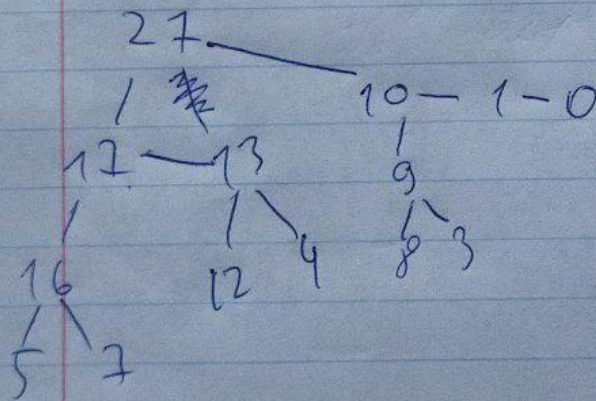 27
10 — 1 — 0
17 — 13
9
16
12 4
8 3
5 7